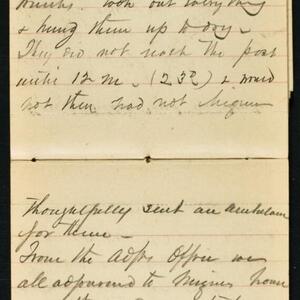 trunks. Took out everything
& hung them up to dry.
They did not reach the post
until 12 M. (23d) & would
not then had not
thoughtfully sent an ambulance
for them.
From the Adjts Office we
all adjourned to house